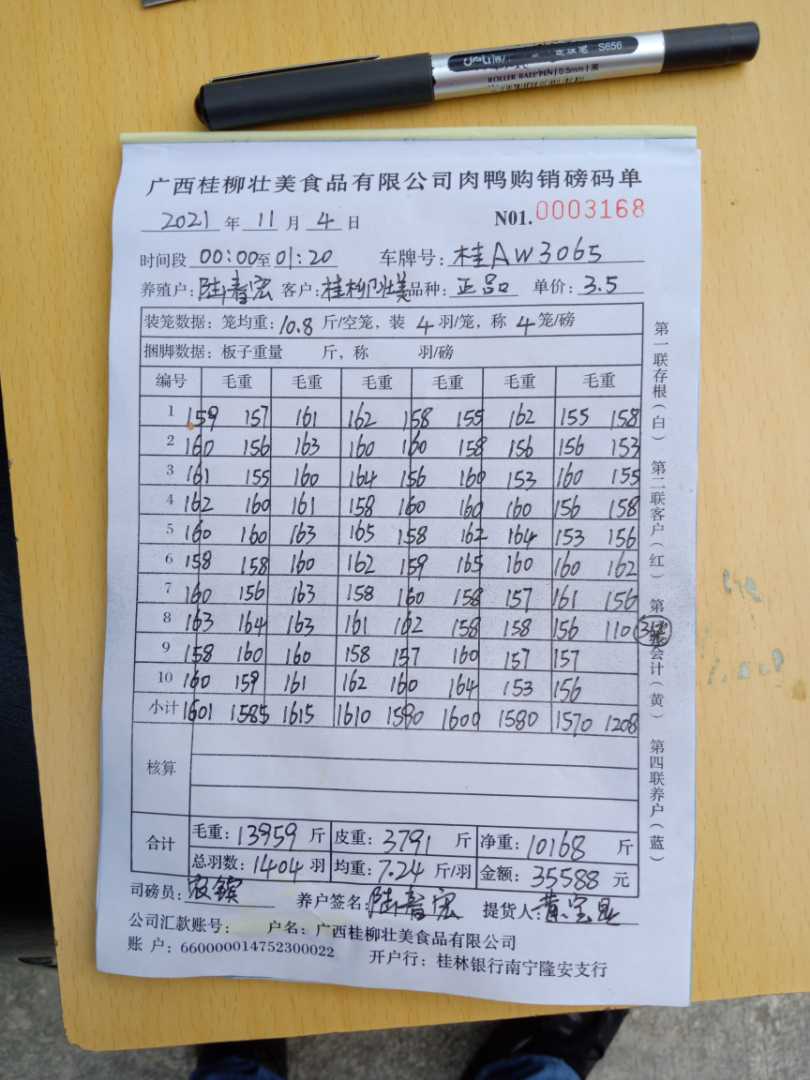 deli S656
ROLLER BALL PEN 0.5mm
广西桂柳壮美食品有限公司肉鸭购销磅码单
2021 年 11 月 4 日 N01.0003168
时间段 00:00至01:20 车牌号: 桂AW3065
养殖户: 陆春宏 客户: 桂柳壮美 品种: 正品 单价: 3.5
装笼数据: 笼均重: 10.8 斤/空笼, 装 4 羽/笼, 称 4 笼/磅
捆脚数据: 板子重量 斤, 称 羽/磅
编号 毛重 毛重 毛重 毛重 毛重 毛重
1 159 157 161 162 158 155 162 155 158
2 160 156 163 160 160 158 156 156 153
3 161 155 160 164 156 160 153 160 155
4 162 160 161 158 160 160 160 156 158
5 160 160 163 165 158 162 164 153 156
6 158 158 160 162 159 165 160 160 162
7 160 156 163 158 160 158 157 161 156
8 163 164 163 161 162 158 158 156 110
9 158 160 160 158 157 160 157 157
10 160 159 161 162 160 164 153 156
小计 1601 1585 1615 1610 1590 1600 1580 1570 1208
核算
合计 毛重: 13959 斤 皮重: 3791 斤 净重: 10168 斤
总羽数: 1404 羽 均重: 7.24 斤/羽 金额: 35588 元
司磅员: 养户签名: 陆春宏 提货人:
公司汇款账号: 户名: 广西桂柳壮美食品有限公司
账 户: 660000014752300022 开户行: 桂林银行南宁隆安支行
第一联存根(白) 第二联客户(红) 第 会计(黄) 第四联养户(蓝)